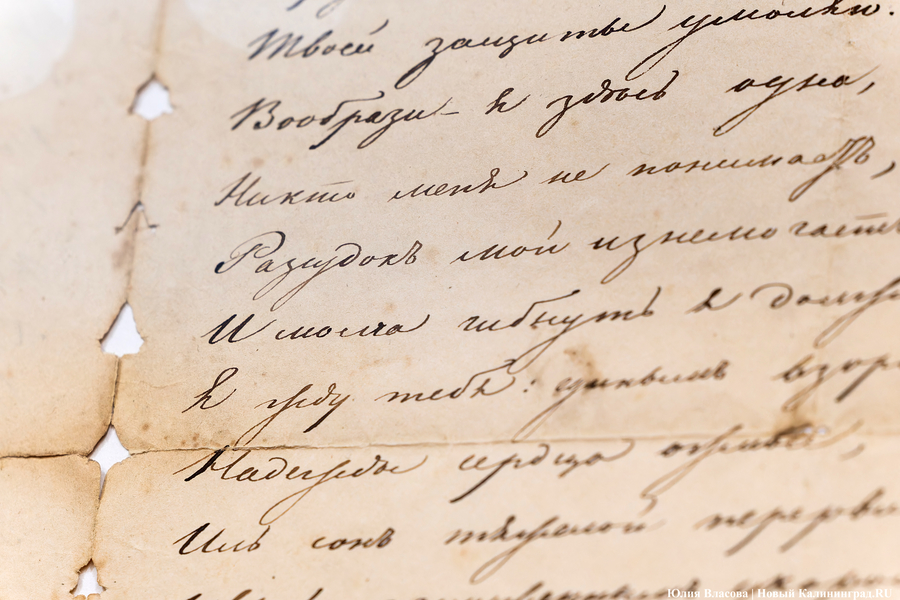 Твоей защиты умоляю.
Вообрази – я здѣсь одна,
Никто меня не понимаетъ,
Разсудокъ мой изнемогаетъ
И молча гибнуть я должна
Я жду тебя: единымъ взоро
Надежды сердца оживи,
Иль сонъ тяжелой перерви
Юлия Власова | Новый Калининград.RU